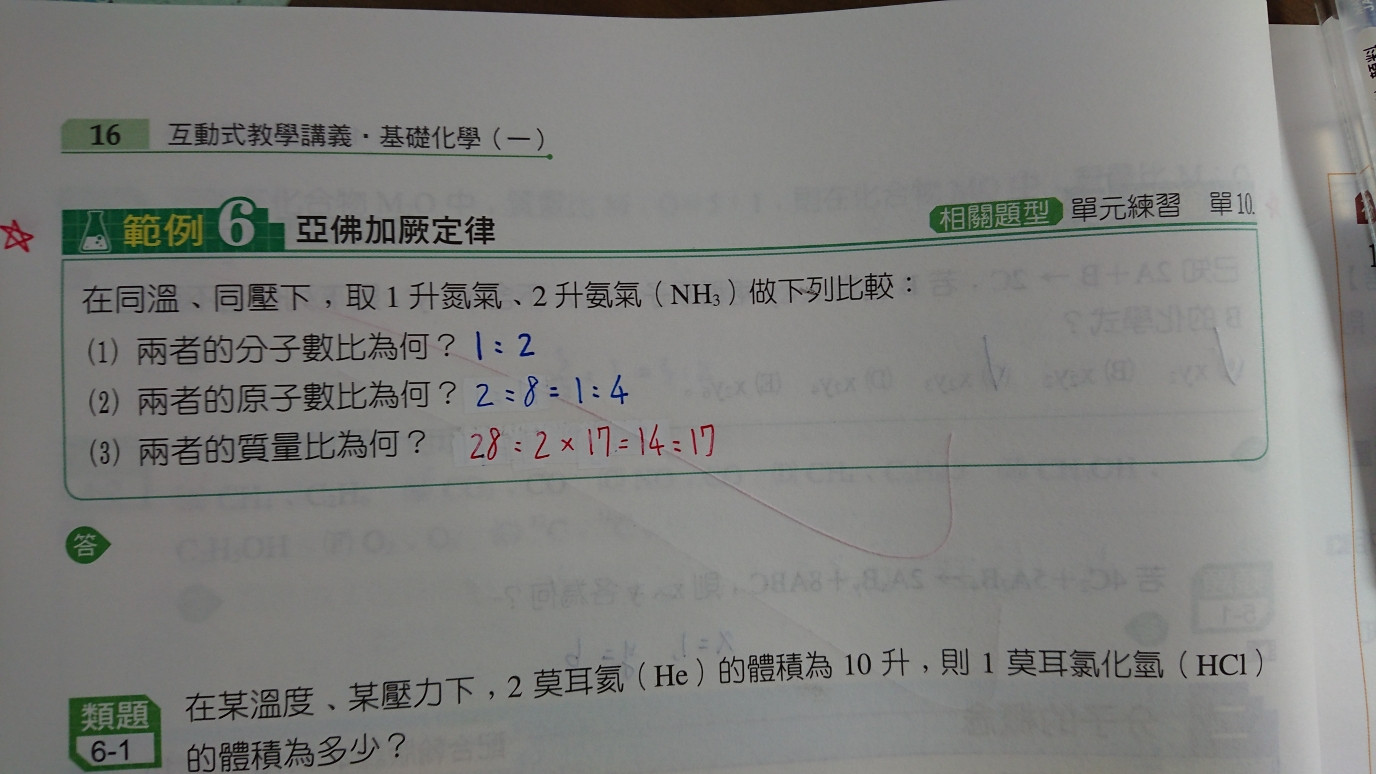 16 互動式教學講義·基礎化學（一）
範例 6 亞佛加厥定律 相關題型 單元練習 單10.
在同溫、同壓下，取 1 升氮氣、2 升氨氣（NH₃）做下列比較：
(1) 兩者的分子數比為何？ 1:2
(2) 兩者的原子數比為何？ 2:8=1:4
(3) 兩者的質量比為何？ 28:2×17=14:17
答
類題 6-1 在某溫度、某壓力下，2 莫耳氦（He）的體積為 10 升，則 1 莫耳氯化氫（HCl）
的體積為多少？